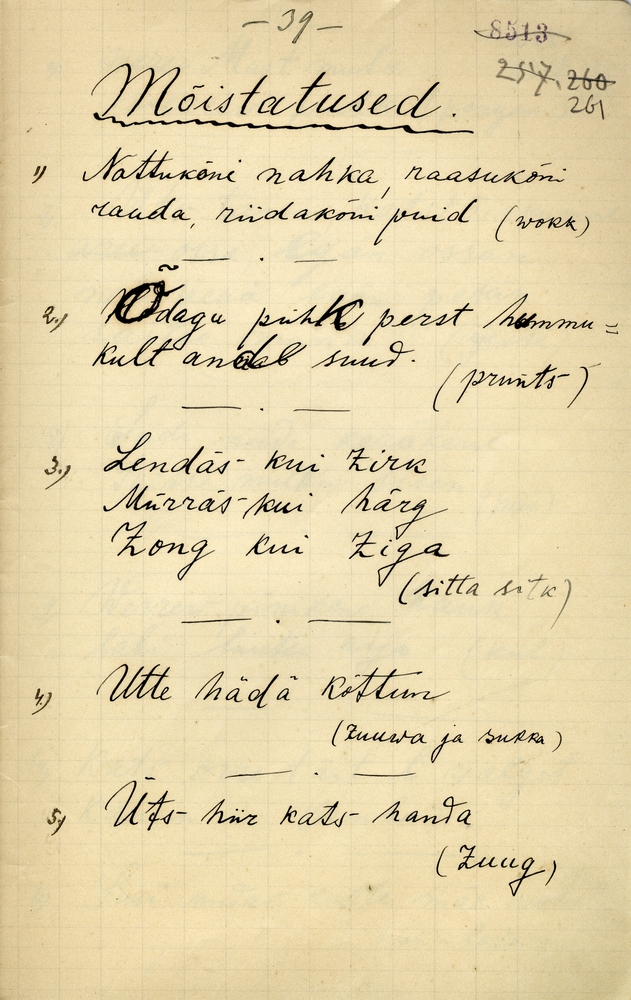 — 39 —
8513
257. 260
261
Mõistatused.
1) Nattukõni nahka, raasukõni
rauda, riidakõni puid (wokk)
2.) Õdagu pühk perst hummu=
kult andab suud.
(prunts)
3.) Lendäs kui Zirk
Mürräs kui härg
Zong kui Ziga
(sitta sitk)
4.) Utte hädä kõttun
(Zuuwa ja sukka)
5.) Üts hiir kats handa
(Zuug)